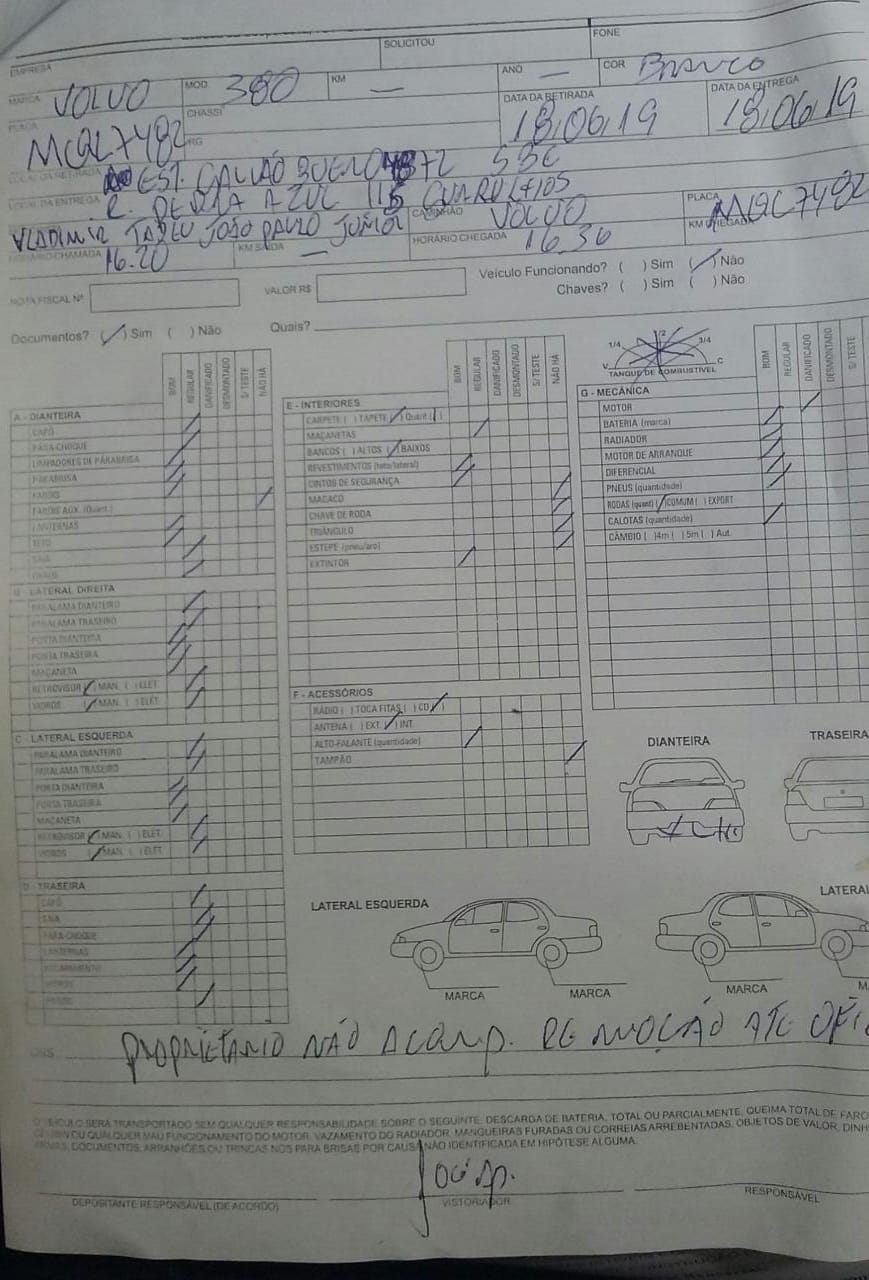 EMPRESA SOLICITOU FONE
MARCA VOLVO MOD 380 KM — ANO — COR BRANCO
PLACA CHASSI DATA DA RETIRADA 18/06/19 DATA DA ENTREGA 18/06/19
RG
LOCAL DA RETIRADA EST. GALVÃO BUENO SBC
LOCAL DA ENTREGA R. AZUL 115 GUARULHOS
VLADIMIR JOÃO PAULO JUNIOR CAMINHÃO VOLVO PLACA
HORÁRIO CHAMADA 16.20 KM SAÍDA — HORÁRIO CHEGADA 16.30 KM CHEGADA
NOTA FISCAL Nº VALOR R$ Veículo Funcionando? ( ) Sim (/) Não
Chaves? ( ) Sim ( ) Não
Documentos? (/) Sim ( ) Não Quais?
BOM REGULAR DANIFICADO DESMONTADO S/ TESTE NÃO HÁ
A - DIANTEIRA
CAPÔ
PARA-CHOQUE
LIMPADORES DE PARABRISA
PARABRISA
FARÓIS
FARÓIS AUX. (Quant.)
LANTERNAS
TETO
SAIA
B - LATERAL DIREITA
PARALAMA DIANTEIRO
PARALAMA TRASEIRO
PORTA DIANTEIRA
PORTA TRASEIRA
MAÇANETA
RETROVISOR (/) MAN. ( ) ELÉT.
VIDROS (/) MAN. ( ) ELÉT.
C - LATERAL ESQUERDA
PARALAMA DIANTEIRO
PARALAMA TRASEIRO
PORTA DIANTEIRA
PORTA TRASEIRA
MAÇANETA
RETROVISOR (/) MAN. ( ) ELÉT.
VIDROS (/) MAN. ( ) ELÉT.
D - TRASEIRA
CAPÔ
SAIA
PARA-CHOQUE
LANTERNAS
ESCAPAMENTO
VIDROS
BOM REGULAR DANIFICADO DESMONTADO S/ TESTE NÃO HÁ
E - INTERIORES
CARPETE ( ) TAPETE (/) Quant ( )
MAÇANETAS
BANCOS ( ) ALTOS (/) BAIXOS
REVESTIMENTOS (teto/lateral)
CINTOS DE SEGURANÇA
MACACO
CHAVE DE RODA
TRIÂNGULO
ESTEPE (pneu/aro)
EXTINTOR
F - ACESSÓRIOS
RÁDIO ( ) TOCA FITAS ( ) CD (/)
ANTENA ( ) EXT. (/) INT.
ALTO-FALANTE (quantidade)
TAMPÃO
V 1/4 1/2 3/4 C
TANQUE DE COMBUSTÍVEL
BOM REGULAR DANIFICADO DESMONTADO S/ TESTE
G - MECÂNICA
MOTOR
BATERIA (marca)
RADIADOR
MOTOR DE ARRANQUE
DIFERENCIAL
PNEUS (quantidade)
RODAS (quant) (/) COMUM ( ) EXPORT
CALOTAS (quantidade)
CÂMBIO ( ) 4m ( ) 5m ( ) Aut.
DIANTEIRA TRASEIRA
LATERAL ESQUERDA LATERAL
MARCA MARCA MARCA
OBS. PROPRIETARIO NÃO ACOMP. REMOÇÃO ATE
O VEÍCULO SERÁ TRANSPORTADO SEM QUALQUER RESPONSABILIDADE SOBRE O SEGUINTE: DESCARGA DE BATERIA, TOTAL OU PARCIALMENTE, QUEIMA TOTAL DE
OU QUALQUER MAU FUNCIONAMENTO DO MOTOR. VAZAMENTO DO RADIADOR. MANGUEIRAS FURADAS OU CORREIAS ARREBENTADAS, OBJETOS DE VALOR,
DOCUMENTOS, ARRANHÕES OU TRINCAS NOS PARA BRISAS POR CAUSA NÃO IDENTIFICADA EM HIPÓTESE ALGUMA.
DEPOSITANTE RESPONSÁVEL (DE ACORDO) VISTORIADOR RESPONSÁVEL